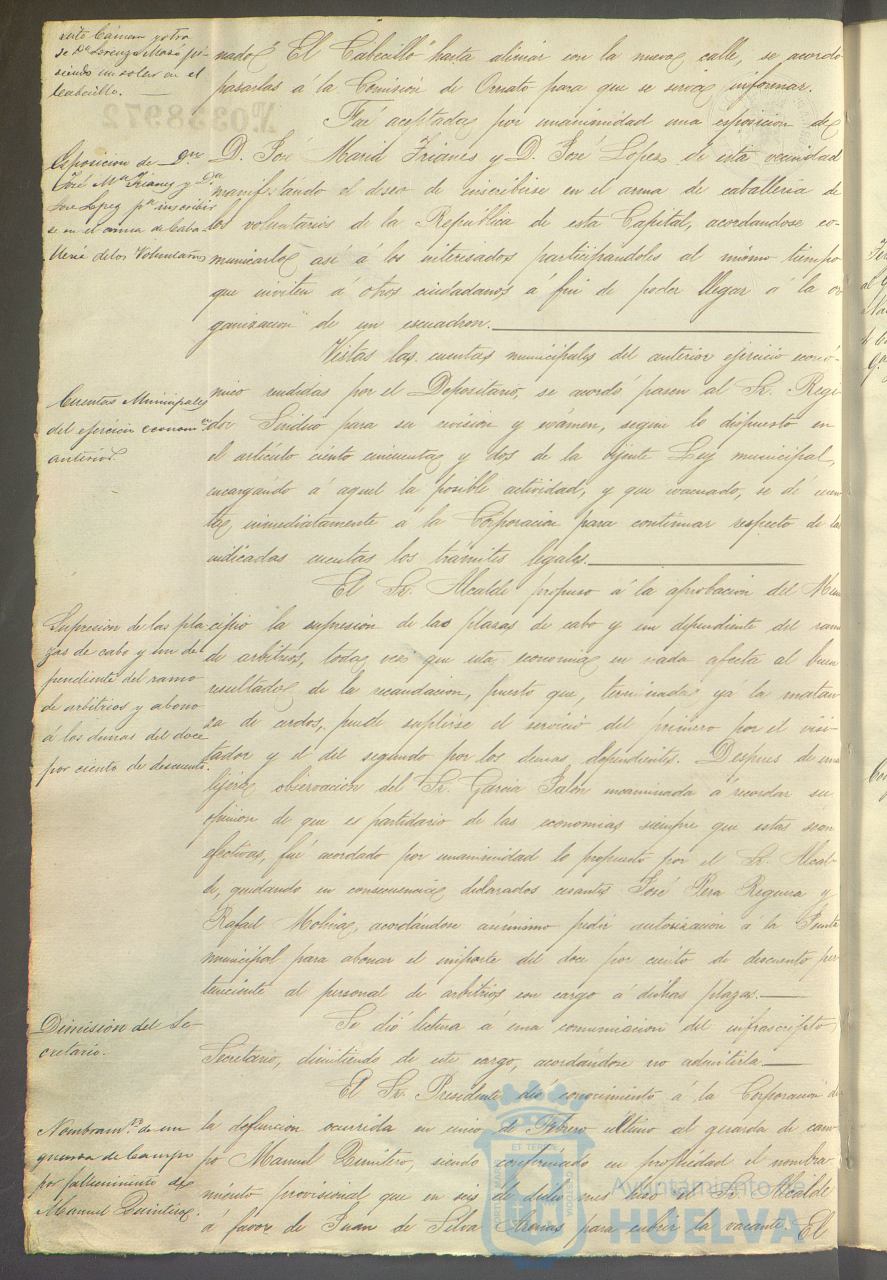 vente Cámara y otra
de Dª Lorenza Mazo pi-
diendo un solar en el
Cabecillo.
nado "El Cabecillo" hasta alinear con la nueva calle, se acordó
pasarlas á la Comision de Ornato para que se sirva informar.
Nº 0338972
Fué aceptada por unanimidad una esposicion de
Esposicion de Dn
José Mª Trianes y Dn
José Lopez pª inscribir
se en el arma de Caba-
llería de los Voluntarios
D. José Maria Trianes y D. José Lopez de esta vecindad
manifestando el deseo de inscribirse en el arma de caballería de
los voluntarios de la República de esta Capital, acordandose co-
municarlo así á los interesados participandoles al mismo tiempo
que inviten á otros ciudadanos á fin de poder llegar á la or
ganizacion de un escuadron.
Vistas las cuentas municipales del anterior ejercicio econó-
Cuentas Municipales
del ejercicio economico
anterior.
mico rendidas por el Depositario, se acordó pasen al Sr. Regi
dor Síndico para su revision y exámen, segun lo dispuesto en
el artículo ciento cincuenta y dos de la vijente Ley municipal,
encargando á aquel la posible actividad, y que evacuado, se dé cuen
ta inmediatamente á la Corporacion para continuar respecto de las
indicadas cuentas los trámites legales.
El Sr. Alcalde propuso á la aprobacion del Mun
Supresion de las pla
zas de cabo y un de
pendiente del ramo
de arbitrios y abono
á los demas del doce
por ciento de descuento.
cipio la supresión de las plazas de cabo y un dependiente del ramo
de arbitrios, toda vez que esta economia en nada afecta al buen
resultado de la recaudacion, puesto que, terminada yá la matan
za de cerdos, puede suplirse el servicio del primero por el visi-
tador y el del segundo por los demas dependientes. Despues de una
lijera observacion del Sr. Garcia Jalón encaminada á recordar su
opinion de que es partidario de las economias siempre que estas sean
efectivas, fué acordado por unanimidad lo propuesto por el Sr. Alcal-
de, quedando en consecuencia declarados cesantes José Pera Reguera y
Rafael Molina, acordándose asímismo pedir autorizacion á la Junta
municipal para abonar el importe del doce por ciento de descuento per
teneciente al personal de arbitrios con cargo á dichas plazas.
Dimisión del Se-
cretario.
Se dió lectura á una comunicacion del infrascripto
Secretario, dimitiendo de este cargo, acordándose no admitirla.
El Sr. Presidente dió conocimiento á la Corporacion de
Nombramto de un
guarda de Campo
por fallecimiento de
Manuel Quintero.
la defuncion ocurrida en cinco de Febrero último al guarda de cam
po Manuel Quintero, siendo confirmado en propiedad el nombra
miento provisional que en seis de dicho mes hizo el Sr. Alcalde
á favor de Juan de Silva Arenas para cubrir la vacante. El
Ayuntamiento de
HUELVA